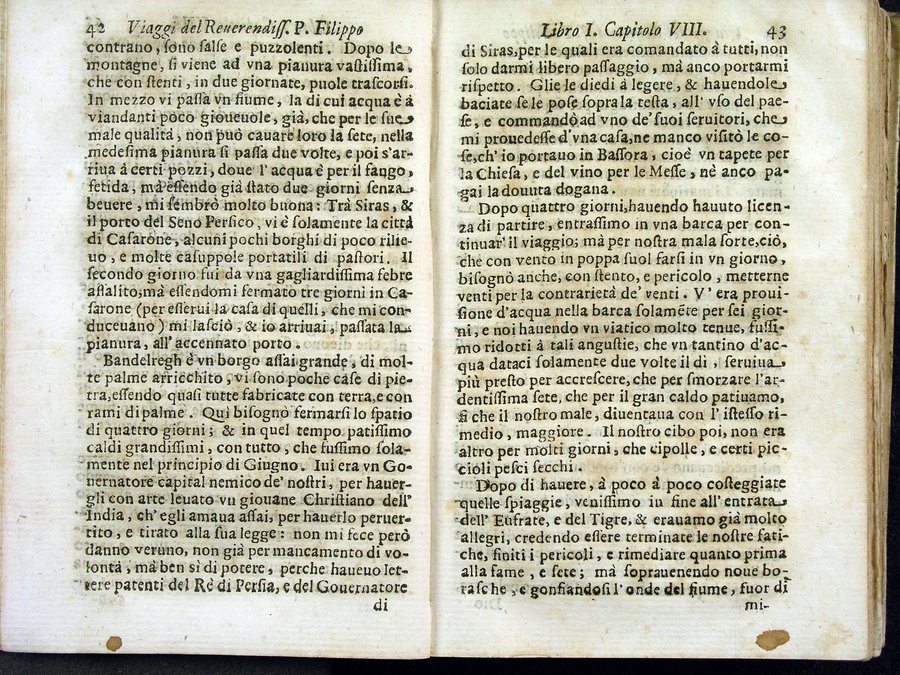 42 Viaggi del Reuerendiſſ. P. Filippo
contrano, ſono falſe e puzzolenti. Dopo le
montagne, ſi viene ad vna pianura vaſtiſſima,
che con ſtenti, in due giornate, puole traſcorſi.
In mezzo vi paſſa vn fiume, la di cui acqua è à
viandanti poco gioueuole, già, che per le ſue
male qualità, non può cauare loro la ſete, nella
medeſima pianura ſi paſſa due volte, e poi s'ar-
riua á certi pozzi, doue l' acqua è per il fango,
fetida, mà eſſendo già ſtato due giorni ſenza
beuere, mi ſembrò molto buona: Trà Siras, &
il porto del Seno Perſico, vi è ſolamente la città
di Caſarone, alcuni pochi borghi di poco rilie-
uo, e molte caſuppole portatili di paſtori. Il
ſecondo giorno fui da vna gagliardiſſima febre
aſſalito, mà eſſendomi fermato tre giorni in Ca-
ſarone (per eſſerui la caſa di quelli, che mi con-
duceuano) mi laſciò, & io arriuai, paſſata la
pianura, all' accennato porto.
Bandelregh è vn borgo aſſai grande, di mol-
te palme arriechito, vi ſono poche caſe di pie-
tra, eſſendo quaſi tutte fabricate con terra, e con
rami di palme. Quì biſognò fermarſi lo ſpatio
di quattro giorni; & in quel tempo patiſſimo
caldi grandiſſimi, con tutto, che fuſſimo ſola-
mente nel principio di Giugno. Iui era vn Go-
uernatore capital nemico de' noſtri, per hauer-
gli con arte leuato vn giouane Chriſtiano dell'
India, ch' egli amaua aſſai, per hauerlo peruer-
tito, e tirato alla ſua legge: non mi fece però
danno veruno, non già per mancamento di vo-
lontà, mà ben sì di potere, perche haueuo let-
tere patenti del Rè di Perſia, e del Gouernatore
di
Libro I. Capitolo VIII. 43
di Siras, per le quali era comandato à tutti, non
ſolo darmi libero paſſaggio, mà anco portarmi
riſpetto. Glie le diedi à legere, & hauendole
baciate ſe le poſe ſopra la teſta, all' vſo del pae-
ſe, e commandò ad vno de' ſuoi ſeruitori, che
mi prouedeſſe d'vna caſa, ne manco viſitò le co-
ſe, ch' io portauo in Baſſora, cioè vn tapete per
la Chieſa, e del vino per le Meſſe, nè anco pa-
gai la douuta dogana.
Dopo quattro giorni, hauendo hauuto licen-
za di partire, entraſſimo in vna barca per con-
tinuar' il viaggio; mà per noſtra mala ſorte, ciò,
che con vento in poppa ſuol farſi in vn giorno,
biſognò anche, con ſtento, e pericolo, metterne
venti per la contrarietà de' venti. V' era proui-
ſione d'acqua nella barca ſolamēte per ſei gior-
ni, e noi hauendo vn viatico molto tenue, fuſſi-
mo ridotti à tali anguſtie, che vn tantino d'ac-
qua dataci ſolamente due volte il dì, ſeruiua
più preſto per accreſcere, che per ſmorzare l'ar-
dentiſſima ſete, che per il gran caldo patiuamo,
ſi che il noſtro male, diuentaua con l' iſteſſo ri-
medio, maggiore. Il noſtro cibo poi, non era
altro per molti giorni, che cipolle, e certi pic-
cioli peſci ſecchi.
Dopo di hauere, à poco à poco coſteggiate
quelle ſpiaggie, veniſſimo in fine all' entrata
dell' Eufrate, e del Tigre, & erauamo già molto
allegri, credendo eſſere terminate le noſtre fati-
che, finiti i pericoli, e rimediare quanto prima
alla fame, e ſete; mà ſoprauenendo noue bo-
raſche, e gonfiandoſi l'onde del fiume, fuor di
mi-